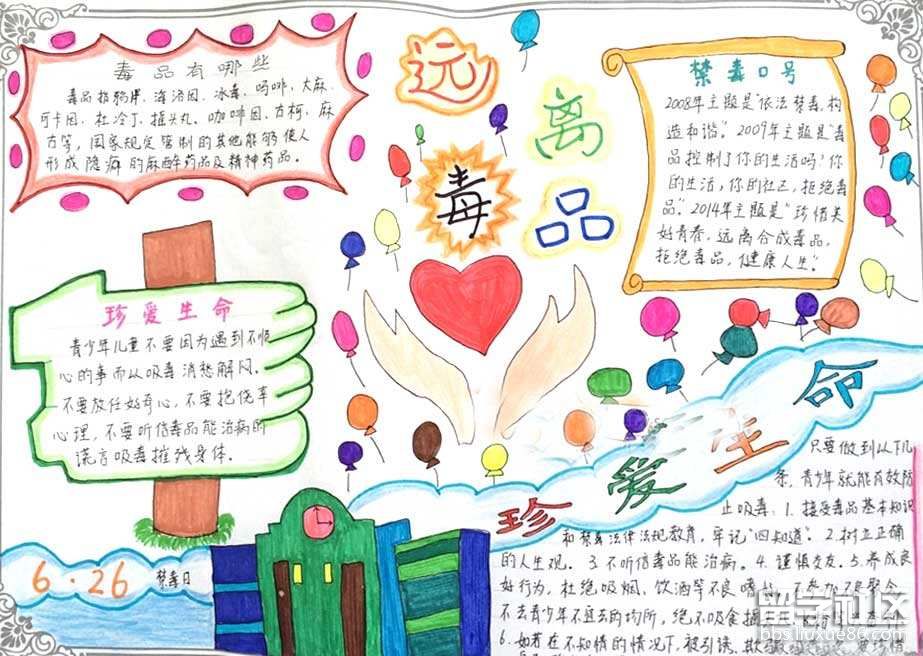 毒品有哪些
毒品指鸦片、海洛因、冰毒、吗啡、大麻、
可卡因、杜冷丁、摇头丸、咖啡因、古柯、麻
古等，国家规定管制的其他能够使人
形成隐癖的麻醉药品及精神药品。
远
离
毒
品
禁毒口号
2008年主题是“依法禁毒，构
造和谐”。2009年主题是“毒
品控制了你的生活吗？你
的生活，你的社区，拒绝毒
品”。2014年主题是“珍惜美
好青春，远离合成毒品，
拒绝毒品，健康人生”。
珍爱生命
青少年儿童不要因为遇到不顺
心的事而以吸毒消愁解闷。
不要放任好奇心，不要抱侥幸
心理，不要听信毒品能治病的
谎言吸毒摧残身体。
6·26 禁毒日
珍爱生命
只要做到以下几
条，青少年就能有效防
止吸毒：1.接受毒品基本知识
和禁毒法律法规教育，牢记“四知道”。2.树立正确
的人生观。3.不听信毒品能治病。4.谨慎交友。5.养成良
好行为，杜绝吸烟、饮酒等不良嗜
不去青少年不宜去的场所，绝不吸食摇
6.如若在不知情的情况下，被引诱、欺
留学社区
bbs.liuxue86.com